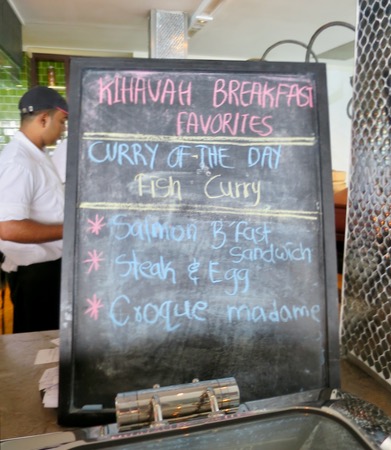 KIHAVAH BREAKFAST
FAVORITES
CURRY OF THE DAY
Fish Curry
* Salmon B'fast
Sandwich
* Steak & Egg
* Croque madame